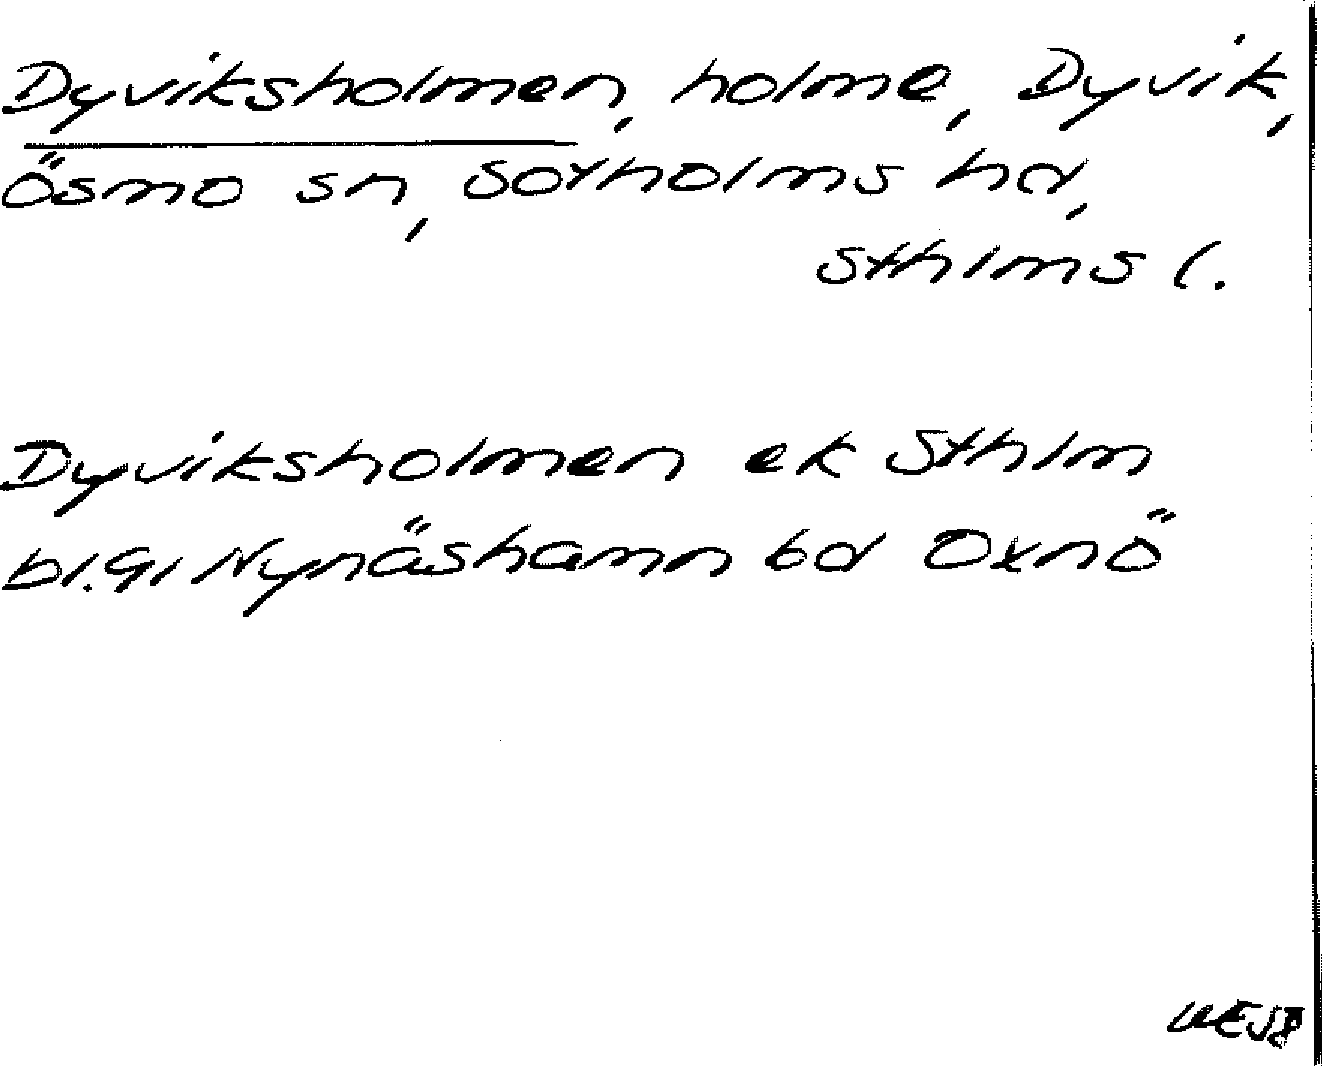 Dyviksholmen, holme, Dyvik,
Ösmo sn, Sotholms hd,
Sthlms l.
Dyviksholmen ek Sthlm
bl. 91 Nynäshamn bd Oxnö